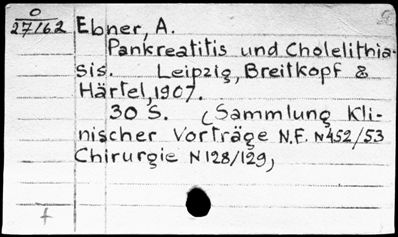 O
27162
Ebner, A.
Pankreatitis und Cholelithia-
sis. Leipzig, Breitkopf &
Härtel, 1907.
30 S. (Sammlung Kli-
nischer Vorträge N.F. N 452/53
Chirurgie N 128/129,